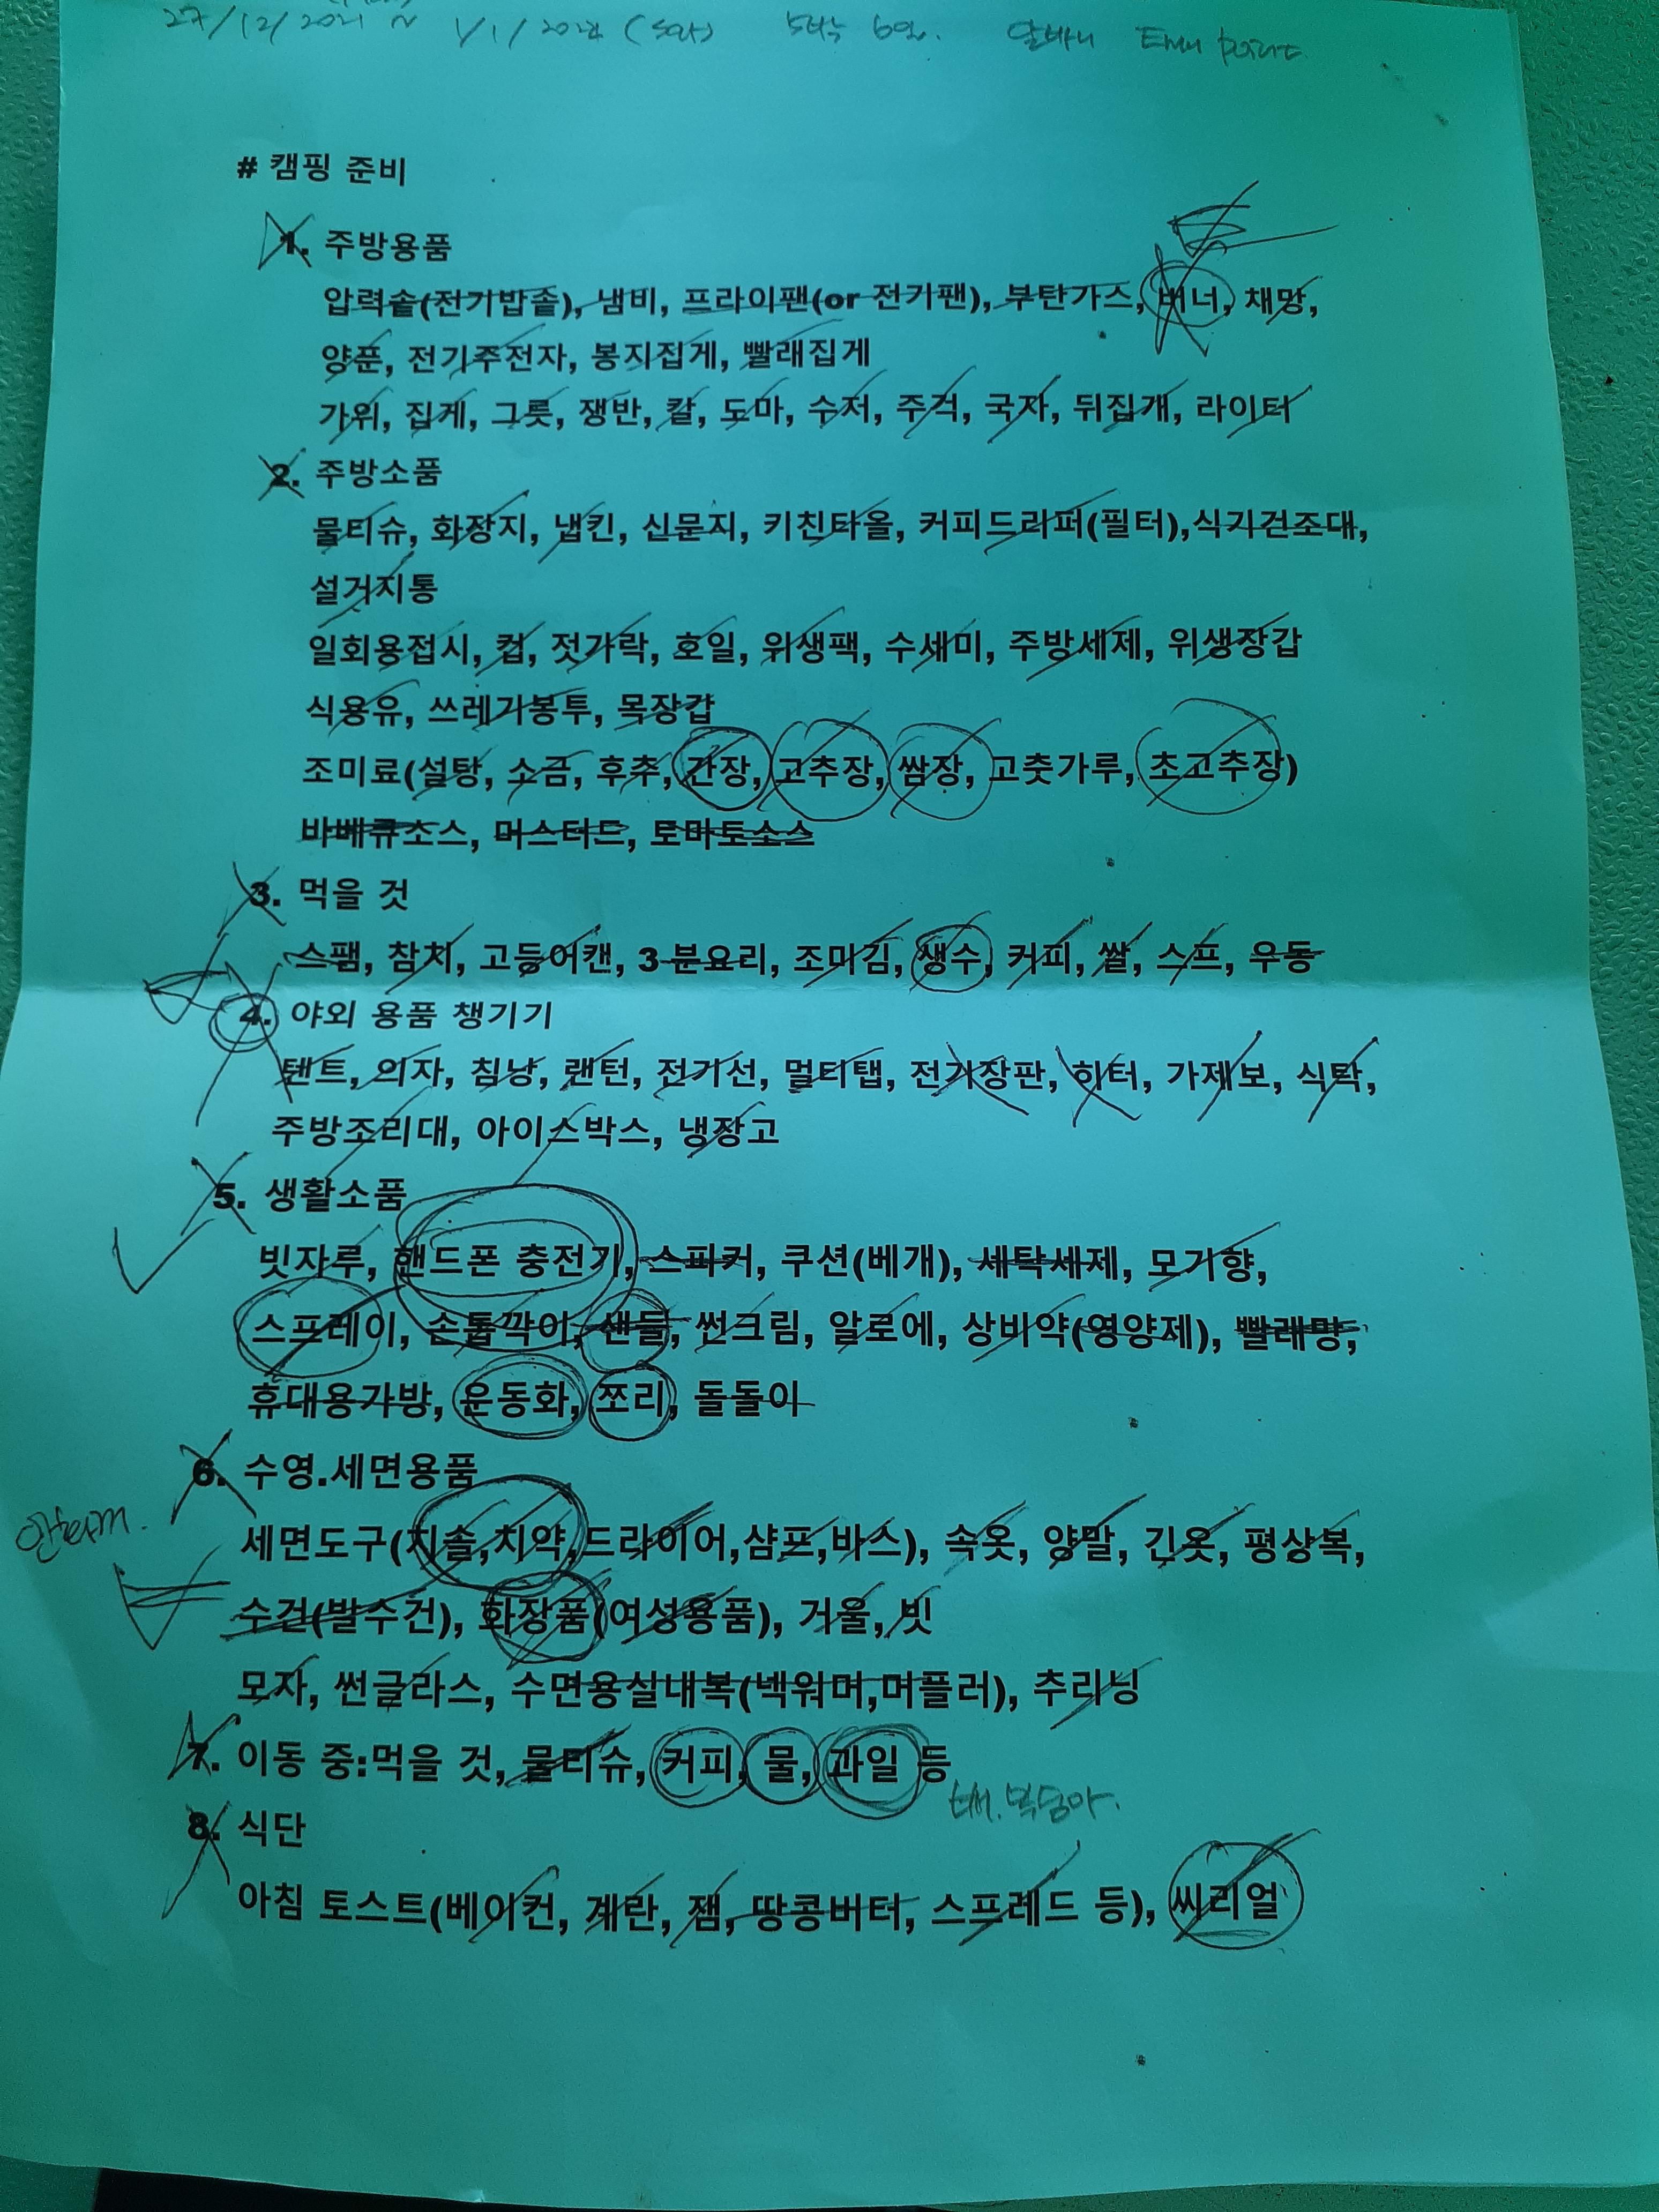 27/12/2021 ~ 1/1/2022 (5박) 5박 6일. 알바니 Emu point
# 캠핑 준비
1. 주방용품
압력솥(전기밥솥), 냄비, 프라이팬(or 전기팬), 부탄가스, 버너, 채망,
양푼, 전기주전자, 봉지집게, 빨래집게
가위, 집게, 그릇, 쟁반, 칼, 도마, 수저, 주걱, 국자, 뒤집개, 라이터
2. 주방소품
물티슈, 화장지, 냅킨, 신문지, 키친타올, 커피드리퍼(필터),식기건조대,
설거지통
일회용접시, 컵, 젓가락, 호일, 위생팩, 수세미, 주방세제, 위생장갑
식용유, 쓰레기봉투, 목장갑
조미료(설탕, 소금, 후추, 간장, 고추장, 쌈장, 고춧가루, 초고추장)
바베큐소스, 머스터드, 토마토소스
3. 먹을 것
스팸, 참치, 고등어캔, 3분요리, 조미김, 생수, 커피, 쌀, 스프, 우동
4. 야외 용품 챙기기
텐트, 의자, 침낭, 랜턴, 전기선, 멀티탭, 전기장판, 히터, 가제보, 식탁,
주방조리대, 아이스박스, 냉장고
5. 생활소품
빗자루, 핸드폰 충전기, 스피커, 쿠션(베개), 세탁세제, 모기향,
스프레이, 손톱깍이, 샌들, 썬크림, 알로에, 상비약(영양제), 빨래망,
휴대용가방, 운동화, 쪼리, 돌돌이
6. 수영.세면용품
세면도구(치솔,치약,드라이어,샴프,바스), 속옷, 양말, 긴옷, 평상복,
수건(발수건), 화장품(여성용품), 거울, 빗
모자, 썬글라스, 수면용실내복(넥워머,머플러), 추리닝
7. 이동 중:먹을 것, 물티슈, 커피, 물, 과일 등
복숭아.
8. 식단
아침 토스트(베이컨, 계란, 잼, 땅콩버터, 스프레드 등), 씨리얼